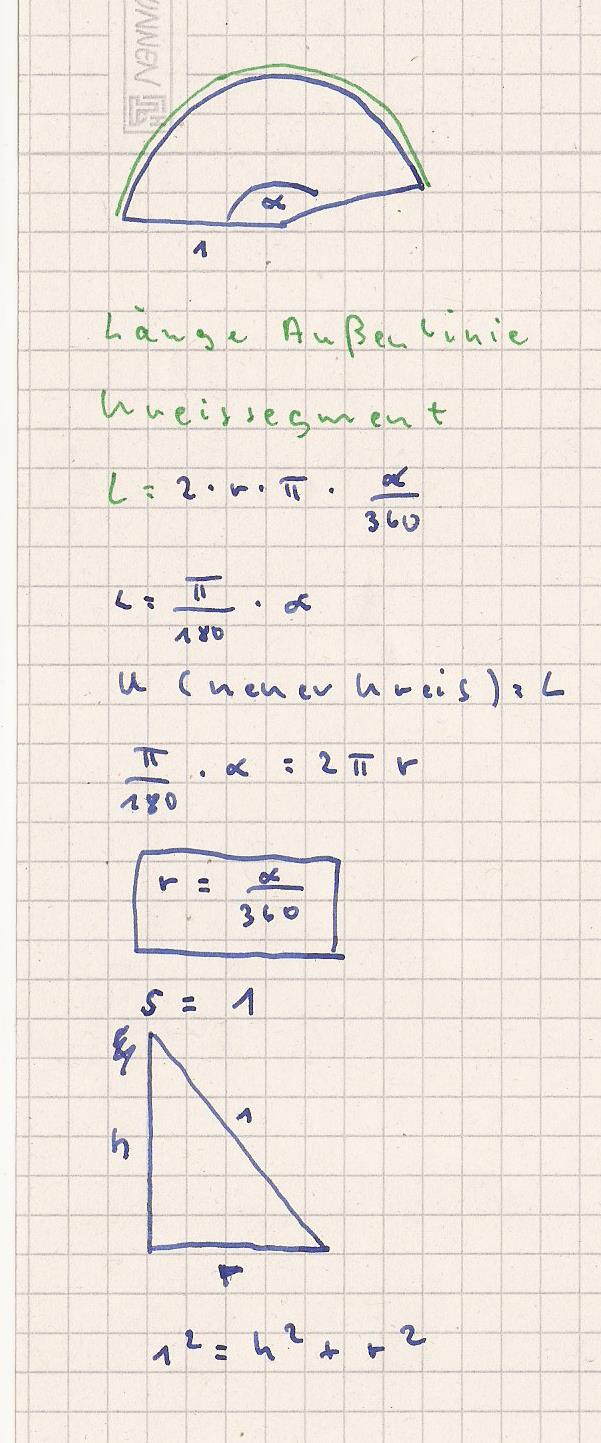 α
1
Länge Außenlinie
Kreissegment
L = 2 · r · π · α/360
L = π/180 · α
U (neuer Kreis) = L
π/180 · α = 2 π r
r = α/360
s = 1
h
1
r
1² = h² + r²